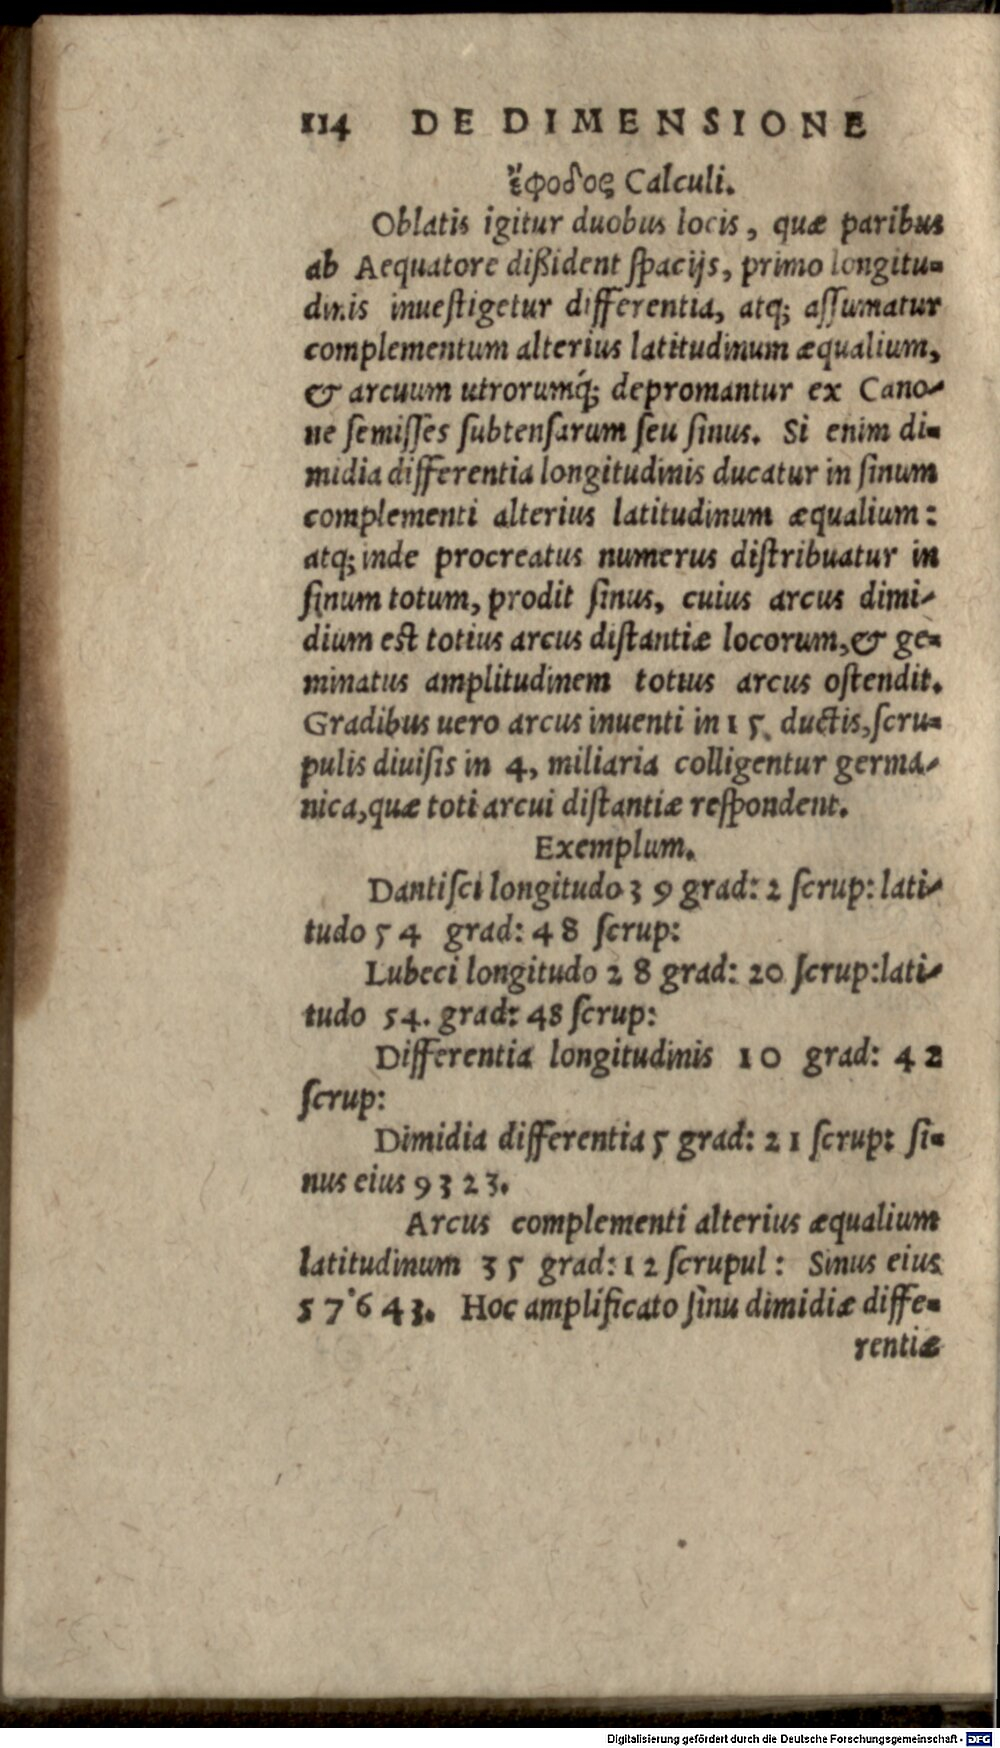 114 DE DIMENSIONE
ἔφοδος Calculi.
Oblatis igitur duobus locis, quæ paribus
ab Aequatore dißident ſpacijs, primo longitu-
dinis inueſtigetur differentia, atq; aſſumatur
complementum alterius latitudinum æqualium,
& arcuum utrorumq́; depromantur ex Cano-
ne ſemiſſes ſubtenſarum ſeu ſinus. Si enim di-
midia differentia longitudinis ducatur in ſinum
complementi alterius latitudinum æqualium:
atq; inde procreatus numerus diſtribuatur in
ſinum totum, prodit ſinus, cuius arcus dimi-
dium eſt totius arcus diſtantiæ locorum, & ge-
minatus amplitudinem totius arcus oſtendit.
Gradibus uero arcus inuenti in 15. ductis, ſcru-
pulis diuiſis in 4, miliaria colligentur germa-
nica, quæ toti arcui diſtantiæ reſpondent.
Exemplum.
Dantiſci longitudo 39 grad: 2 ſcrup: lati-
tudo 54 grad: 48 ſcrup:
Lubeci longitudo 28 grad: 20 ſcrup: lati-
tudo 54. grad: 48 ſcrup:
Differentia longitudinis 10 grad: 42
ſcrup:
Dimidia differentia 5 grad: 21 ſcrup: ſi-
nus eius 9323.
Arcus complementi alterius æqualium
latitudinum 35 grad: 12 ſcrupul: Sinus eius
57643. Hoc amplificato ſinu dimidiæ diffe-
rentiæ
Digitalisierung gefördert durch die Deutsche Forschungsgemeinschaft - DFG